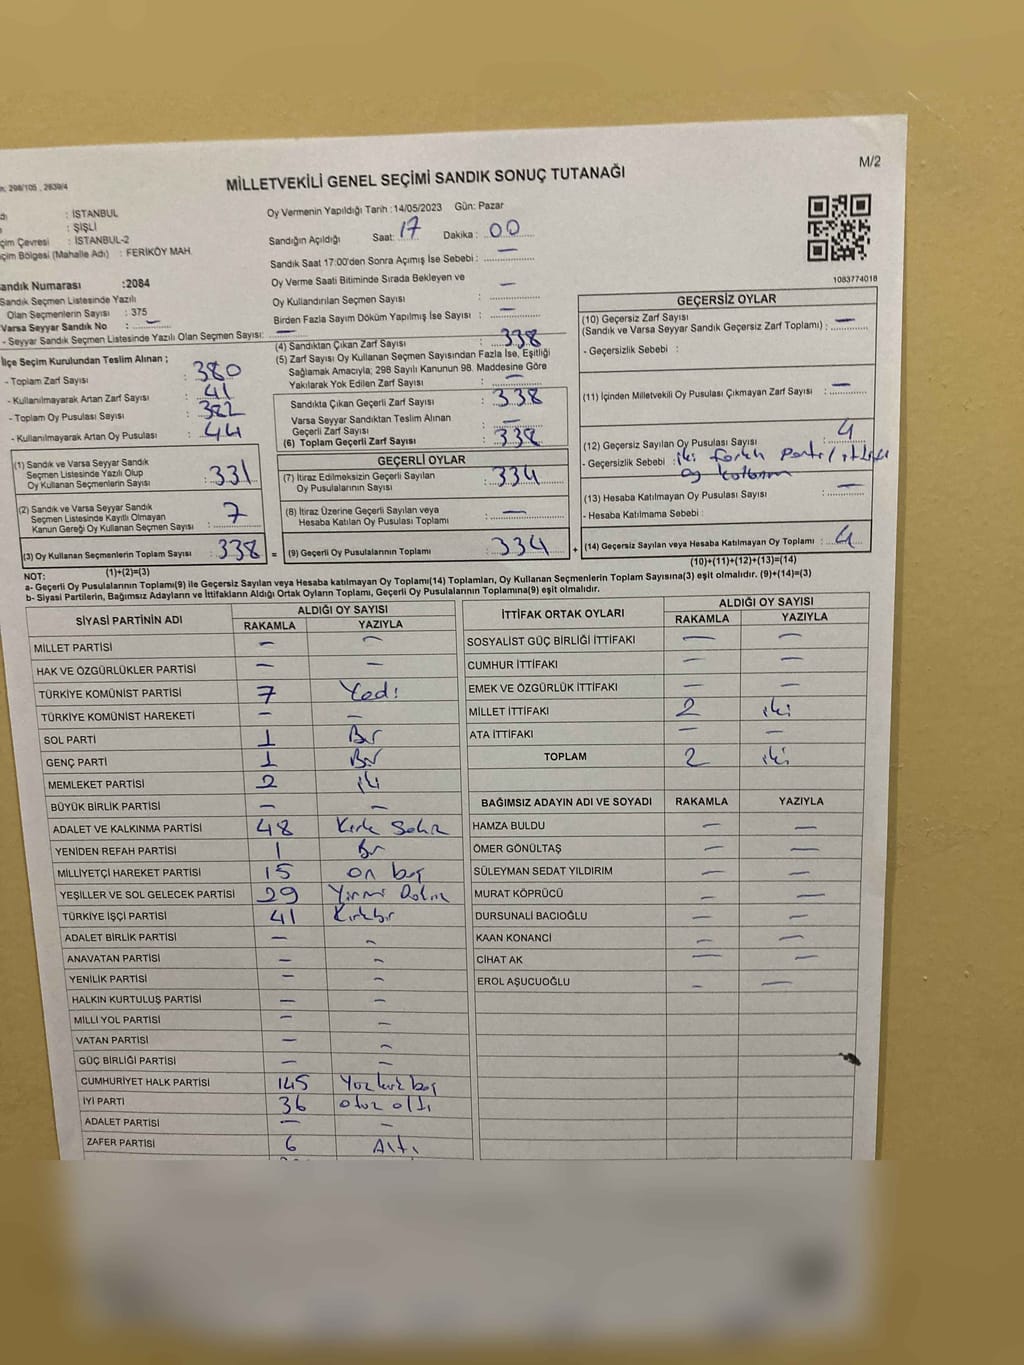 M/2
298/105 , 2839/4
MİLLETVEKİLİ GENEL SEÇİMİ SANDIK SONUÇ TUTANAĞI
: İSTANBUL
: ŞİŞLİ
çim Çevresi : İSTANBUL-2
çim Bölgesi (Mahalle Adı) : FERİKÖY MAH.
andık Numarası :2084
Sandık Seçmen Listesinde Yazılı
Olan Seçmenlerin Sayısı : 375
Varsa Seyyar Sandık No : —
- Seyyar Sandık Seçmen Listesinde Yazılı Olan Seçmen Sayısı: —
İlçe Seçim Kurulundan Teslim Alınan ;
- Toplam Zarf Sayısı : 380
- Kullanılmayarak Artan Zarf Sayısı : 41
- Toplam Oy Pusulası Sayısı : 382
- Kullanılmayarak Artan Oy Pusulası : 44
(1) Sandık ve Varsa Seyyar Sandık
Seçmen Listesinde Yazılı Olup
Oy Kullanan Seçmenlerin Sayısı : 331
(2) Sandık ve Varsa Seyyar Sandık
Seçmen Listesinde Kayıtlı Olmayan
Kanun Gereği Oy Kullanan Seçmen Sayısı : 7
(3) Oy Kullanan Seçmenlerin Toplam Sayısı : 338 =
(1)+(2)=(3)
Oy Vermenin Yapıldığı Tarih :14/05/2023 Gün: Pazar
Sandığın Açıldığı Saat: 17 Dakika : 00
Sandık Saat 17:00'den Sonra Açımış İse Sebebi : —
Oy Verme Saati Bitiminde Sırada Bekleyen ve
Oy Kullandırılan Seçmen Sayısı : —
Birden Fazla Sayım Döküm Yapılmış İse Sayısı : —
(4) Sandıktan Çıkan Zarf Sayısı : 338
(5) Zarf Sayısı Oy Kullanan Seçmen Sayısından Fazla İse, Eşitliği
Sağlamak Amacıyla; 298 Sayılı Kanunun 98. Maddesine Göre
Yakılarak Yok Edilen Zarf Sayısı : —
Sandıkta Çıkan Geçerli Zarf Sayısı : 338
Varsa Seyyar Sandıktan Teslim Alınan
Geçerli Zarf Sayısı : —
(6) Toplam Geçerli Zarf Sayısı : 338
GEÇERLİ OYLAR
(7) İtiraz Edilmeksizin Geçerli Sayılan
Oy Pusulalarının Sayısı : 334
(8) İtiraz Üzerine Geçerli Sayılan veya
Hesaba Katılan Oy Pusulası Toplamı : —
(9) Geçerli Oy Pusulalarının Toplamı : 334 +
1083774018
GEÇERSİZ OYLAR
(10) Geçersiz Zarf Sayısı
(Sandık ve Varsa Seyyar Sandık Geçersiz Zarf Toplamı) : —
- Geçersizlik Sebebi :
(11) İçinden Milletvekili Oy Pusulası Çıkmayan Zarf Sayısı : —
(12) Geçersiz Sayılan Oy Pusulası Sayısı : 4
- Geçersizlik Sebebi : iki farklı parti/ittifaka
oy
(13) Hesaba Katılmayan Oy Pusulası Sayısı : —
- Hesaba Katılmama Sebebi :
(14) Geçersiz Sayılan veya Hesaba Katılmayan Oy Toplamı : 4
(10)+(11)+(12)+(13)=(14)
NOT:
a- Geçerli Oy Pusulalarının Toplamı(9) ile Geçersiz Sayılan veya Hesaba katılmayan Oy Toplamı(14) Toplamları, Oy Kullanan Seçmenlerin Toplam Sayısına(3) eşit olmalıdır. (9)+(14)=(3)
b- Siyasi Partilerin, Bağımsız Adayların ve İttifakların Aldığı Ortak Oyların Toplamı, Geçerli Oy Pusulalarının Toplamına(9) eşit olmalıdır.
SİYASİ PARTİNİN ADI ALDIĞI OY SAYISI
RAKAMLA YAZIYLA
MİLLET PARTİSİ — —
HAK VE ÖZGÜRLÜKLER PARTİSİ — —
TÜRKİYE KOMÜNİST PARTİSİ 7 Yedi
TÜRKİYE KOMÜNİST HAREKETİ — —
SOL PARTİ 1 Bir
GENÇ PARTİ 1 Bir
MEMLEKET PARTİSİ 2 iki
BÜYÜK BİRLİK PARTİSİ — —
ADALET VE KALKINMA PARTİSİ 48 Kırk Sekiz
YENİDEN REFAH PARTİSİ 1 Bir
MİLLİYETÇİ HAREKET PARTİSİ 15 on beş
YEŞİLLER VE SOL GELECEK PARTİSİ 29 Yirmi Dokuz
TÜRKİYE İŞÇİ PARTİSİ 41 Kırkbir
ADALET BİRLİK PARTİSİ — —
ANAVATAN PARTİSİ — —
YENİLİK PARTİSİ — —
HALKIN KURTULUŞ PARTİSİ — —
MİLLİ YOL PARTİSİ — —
VATAN PARTİSİ — —
GÜÇ BİRLİĞİ PARTİSİ — —
CUMHURİYET HALK PARTİSİ 145 Yüz kırk beş
İYİ PARTİ 36 otuz altı
ADALET PARTİSİ — —
ZAFER PARTİSİ 6 Altı
İTTİFAK ORTAK OYLARI ALDIĞI OY SAYISI
RAKAMLA YAZIYLA
SOSYALİST GÜÇ BİRLİĞİ İTTİFAKI — —
CUMHUR İTTİFAKI — —
EMEK VE ÖZGÜRLÜK İTTİFAKI — —
MİLLET İTTİFAKI 2 iki
ATA İTTİFAKI — —
TOPLAM 2 iki
BAĞIMSIZ ADAYIN ADI VE SOYADI RAKAMLA YAZIYLA
HAMZA BULDU — —
ÖMER GÖNÜLTAŞ — —
SÜLEYMAN SEDAT YILDIRIM — —
MURAT KÖPRÜCÜ — —
DURSUNALİ BACIOĞLU — —
KAAN KONANCİ — —
CİHAT AK — —
EROL AŞUCUOĞLU — —